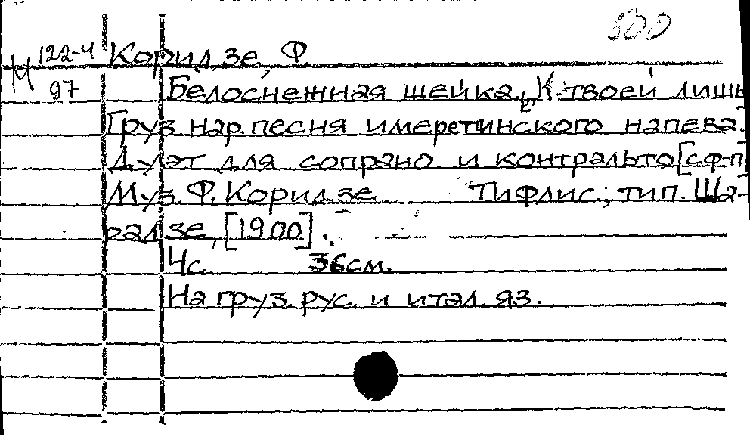 500
М 122-4 Коридзе, Ф
97 Белоснежная шейка, К твоей лишь
Груз нар. песня имеретинского напева.
Дуэт для сопрано и контральто [с ф-п]
Муз Ф. Коридзе Тифлис, тип. Ша-
радзе, [1900].
4с. 36см.
На груз. рус. и итал. яз.